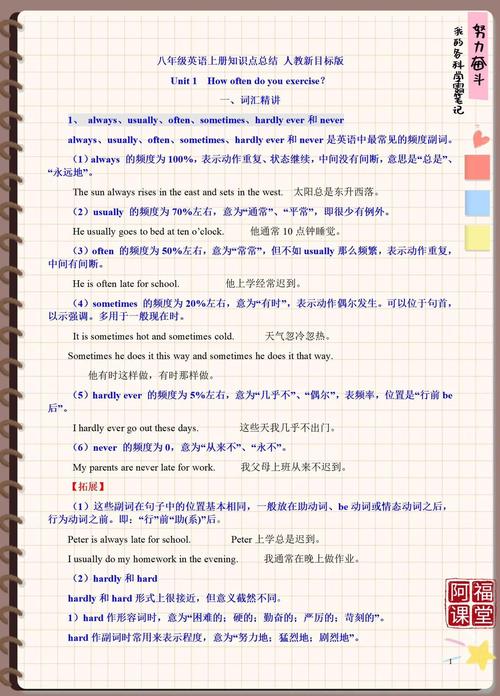 八年级英语上册知识点总结 人教新目标版
Unit 1 How often do you exercise？
一、词汇精讲
1、 always、usually、often、sometimes、hardly ever 和 never
always、usually、often、sometimes、hardly ever 和 never 是英语中最常见的频度副词。
（1）always 的频度为 100%，表示动作重复、状态继续，中间没有间断，意思是“总是”、
“永远地”。
The sun always rises in the east and sets in the west. 太阳总是东升西落。
（2）usually 的频度为 70%左右，意为“通常”、“平常”，即很少有例外。
He usually goes to bed at ten o’clock. 他通常 10 点钟睡觉。
（3）often 的频度为 50%左右，意为“常常”，但不如 usually 那么频繁，表示动作重复，
中间有间断。
He is often late for school. 他上学经常迟到。
（4）sometimes 的频度为 20%左右，意为“有时”，表示动作偶尔发生。可以位于句首，
以示强调。多用于一般现在时。
It is sometimes hot and sometimes cold. 天气忽冷忽热。
Sometimes he does it this way and sometimes he does it that way.
他有时这样做，有时那样做。
（5）hardly ever 的频度为 5%左右，意为“几乎不”、“偶尔”，表频率，位置是“行前 be
后”。
I hardly ever go out these days. 这些天我几乎不出门。
（6）never 的频度为 0，意为“从来不”、“永不”。
My parents are never late for work. 我父母上班从来不迟到。
【拓展】
（1）这些副词在句子中的位置基本相同，一般放在助动词、be 动词或情态动词之后，
行为动词之前。即：“行”前“助(系)”后。
Peter is always late for school. Peter 上学总是迟到。
I usually do my homework in the evening. 我通常在晚上做作业。
（2）hardly 和 hard
hardly 和 hard 形式上很接近，但意义截然不同。
1）hard 作形容词时，意为“困难的；硬的；勤奋的；严厉的；苛刻的”。
hard 作副词时常用来表示程度，意为“努力地；猛烈地；剧烈地”。
1
努力奋斗
我的各科学霸笔记
阿福
课堂